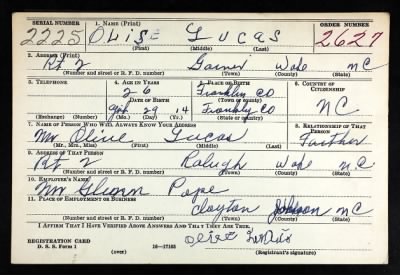 SERIAL NUMBER 1. NAME (Print) ORDER NUMBER
2225 Olise Lucas 2627
(First) (Middle) (Last)
2. ADDRESS (Print)
Rt 2 Garner Wake N C
(Number and street or R. F. D. number) (Town) (County) (State)
3. TELEPHONE 4. AGE IN YEARS 5. PLACE OF BIRTH 6. COUNTRY OF CITIZENSHIP
26 Franklin CO
DATE OF BIRTH (Town or county)
28 14 Franklin CO N C
(Exchange) (No.) (Mo.) (Day) (Yr.) (State or country)
7. NAME OF PERSON WHO WILL ALWAYS KNOW YOUR ADDRESS 8. RELATIONSHIP OF THAT PERSON
Mr Olive Lucas Father
(Mr., Mrs., Miss) (First) (Middle) (Last)
9. ADDRESS OF THAT PERSON
Rt 2 Raleigh Wake N.C.
(Number and street or R. F. D. number) (Town) (County) (State)
10. EMPLOYER'S NAME
Mr Glenn Pope
11. PLACE OF EMPLOYMENT OR BUSINESS
Clayton Johnson N C
(Number and street or R. F. D. number) (Town) (County) (State)
I AFFIRM THAT I HAVE VERIFIED ABOVE ANSWERS AND THAT THEY ARE TRUE.
REGISTRATION CARD
D. S. S. Form 1 (over) 16—17105 (Registrant's signature)